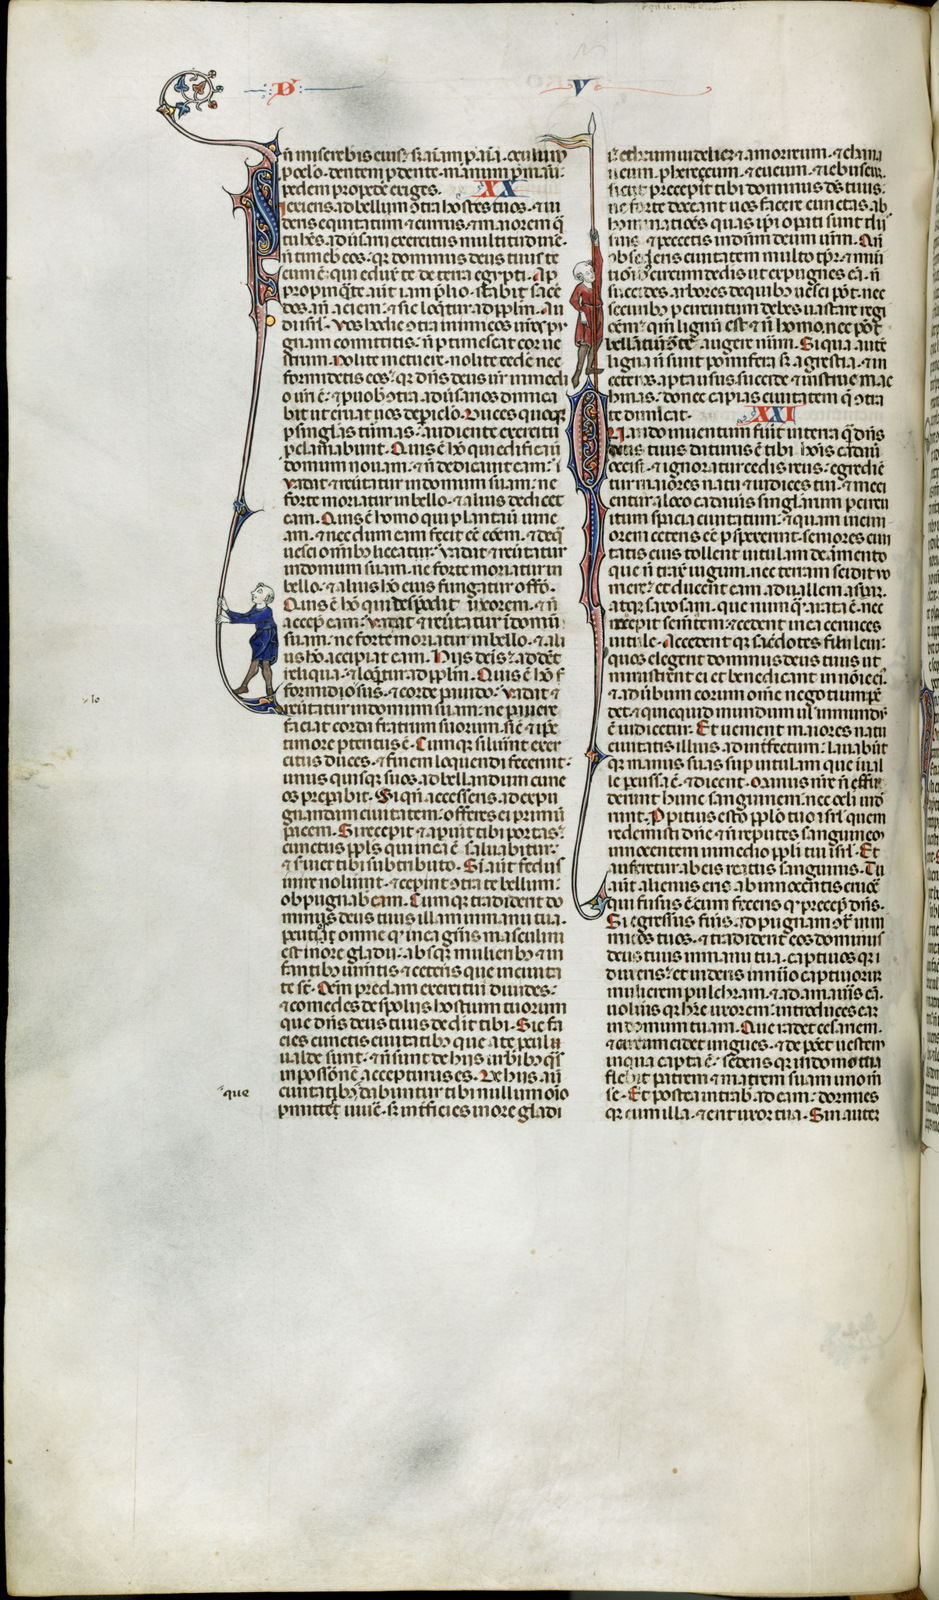 D
V
n̄ misereb̾is eius· sꝫ aīam p̄ aīa· oculum
p̄ oclo· dentem p̄ dente· manum p̄ manu·
pedem pro pede exiges.
XX
Si exieris ad bellum ɔtra hostes tuos· ⁊ ui
deris equitatum ⁊ currus· ⁊ maiorem q̄
tu hēs aduersarii exercitus multitudinē·
n̄ timeb̾ eos· qꝛ dominus deus tuus te
cum ē· qui eduxit te de terra egypti. Ap
propinq̄te aut̄ iam p̄lio· stabit sac̾
dos an̄ aciem· ⁊ sic loq̄tur ad pplm̄. Au
di isrl̄· vos hodie ɔtra inimicos ur̄os pu
gnam committitis· n̄ ptimescat cor ue
strum. Nolite metuere· nolite ced̾e nec
formidetis eos· qꝛ dn̄s deus ur̄ in medi
o ur̄i ē· ⁊ p uob̾ ɔtra adūsarios dimica
bit ut eruat uos de piclo. Duces quoqꝫ
p singlas turmas· audiente exercitu
pclamabunt. Quis ē ho qui edificauit
domum nouam· ⁊ n̄ dedicauit eam·
vadat ⁊ reūtatur in domum suam· ne
forte moriatur in bello· ⁊ alius dedicet
eam. Quis ē homo qui plantauit uine
am· ⁊ necdum eam fecit eē cōem· ⁊ de q̄
uesci omīb̾ liceat· vadat ⁊ reūtatur
in domum suam· ne forte moriatur in
bello· ⁊ alius ho eius fungatur offō.
Quis ē hō qui despōdit uxorem· ⁊ n̄
accepit eam· vadat ⁊ reūtatur ī domū
suam· ne forte moriatur in bello· ⁊ ali
us hō accipiat eam. Hiis dcīs· addēt
reliqua· ⁊ loq̄ntur ad pplm̄. Quis ē hō
formidolosus· ⁊ corde pauido· vadat ⁊
reūtatur in domum suam· ne pauere
faciat corda fratrum suorum· sic̄ ⁊ ip̄e
timore pterritus ē. Cumqꝫ siluerint exer
citus duces· ⁊ finem loquendi fecerint·
unusquisqꝫ suos ad bellandum cune
os preparabit. Si qn̄ accesseris ad expu
gnandam ciuitatem· offeres ei primū
pacem. Si receperit ⁊ apuīt tibi portas·
cunctus ppls̄ qui in ea ē saluabitur·
⁊ seruiet tibi sub tributo. Si aūt fedus
inire noluīnt· ⁊ cepint ɔtra te bellum·
obpugnab̾ eam. Cumqꝫ tradiderit do
minus deus tuus illam in manu tua·
pcuties omne qd̾ in ea gn̄is masculini
est in ore gladii· absqꝫ mulierib̾ ⁊ in
fantibus iumentis ⁊ ceteris que in ciuita
te st̄. Oēm predam exercitui diuides·
⁊ comedes de spoliis hostium tuorum
que dn̄s deus tuus dedit tibi. Sic fa
cies cunctis ciuitatib̾ que a te pcul
ualde sunt· ⁊ n̄ sunt de hiis urbib̾ q̄s
in possōnē accepturus es. De hiis aūt
ciuitatib̾ q̄ dabuntur tibi nullum oīo
pmittes uiuē· sꝫ int̾ficies in ore gladi
lo
que
is etheum uidelicꝫ ⁊ amorreum· ⁊ chana
neum· pherezeum· ⁊ eueum· ⁊ iebuseū·
sicut precepit tibi dominus ds̄ tuus·
ne forte doceant uos facere cunctas ab
hominatiōes quas ipi opati sunt diis
suis· ⁊ peccetis in dn̄m deum ur̄m. Qn̄
obsederis ciuitatem multo tp̄r· ⁊ muni
tiōib̾ circumdedis ut expugnes eā· n̄
succides arbores de quib̾ uesci pōt· nec
securib̾ p circuitum debes uastare regi
onem· qm̄ lignū est ⁊ n̄ homo· nec pōt
bellantiū ɔtra te augere nūm. Si qua autē
ligna n̄ sunt pomifera sꝫ agrestia· ⁊ in
ceteros apta usus· succide ⁊ īstrue mac
hinas· donec capias ciuitatem q̄ ɔtra
te dimicat.
XXI
Quando inuentum fuīt in terra q̄ dn̄s
deus tuus daturus ē tibi hoīs cadau
occisi· ⁊ ignoratur cedis reus· egredie
tur maiores natu ⁊ iudices tui· ⁊ meti
entur a loco cadaūis singlarum percui
itum spacia ciuitatum· ⁊ quam uicini
orem ceteris eē pspexerint· seniores ciui
tatis eius tollent uitulam de armento
que n̄ traxit iugum· nec terram scidit uo
mere· ⁊ ducent eam ad uallem aspam
atqꝫ saxosam· que numq̄ arata ē· nec
recepit semtem· ⁊ cedent in ea ceruices
uitule. Accedent qꝫ sac̾dotes filii leui·
quos elegerit dominus deus tuus ut
ministrent ei et benedicant in noīe ei·
⁊ ad ūbum eorum omē negotium pē
det· ⁊ quicquid mundum ul̾ inmundū
ē iudicetur. Et uenient maiores natu
ciuitatis illius ad int̾fectum· lauabūt
qꝫ manus suas sup uitulam que in ual
le pcussa ē· ⁊ dicent. Manus nr̄e n̄ effu
derunt hunc sanguinem· nec ocli uid̾
runt. Ppitius esto pplō tuo isrl̄ quem
redemisti dn̄e· ⁊ n̄ reputes sanguinem
innocentem in medio ppli tui isrl̄. Et
auferetur ab eis reatus sanguinis. Tu
aūt alienus eris ab innocentis cruore
qui fusus ē cum feceris qd̾ precep̄ dn̄s.
Si egressus fuīis ad pugnam ɔtͣ inim
micos tuos· ⁊ tradiderit eos dominus
deus tuus in manu tua· captiuosqꝫ
duxeris· et uideris in nūio captiuorum
mulierem pulchram· ⁊ adamaūis eā·
uolūisqꝫ hr̄e uxorem· introduces eam
in domum tuam. Que radet cesariem·
⁊ circumcidet ungues· ⁊ deponet uestem
in qua capta ē· sedensqꝫ in domo tua
flebit patrem ⁊ matrem suam uno m̄
se. Et postea intrab̾ ad eam· dormies
qꝫ cum illa· ⁊ erit uxor tua. Sin autē